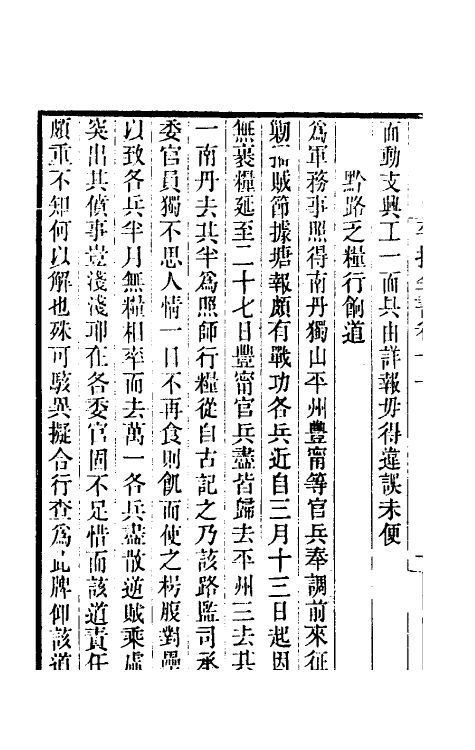 而動支興工一面具由詳報毋得違誤未便
黔路乏糧行餉道
為軍務事照得南丹獨山平州豐甯等官兵奉調前來征
賊節據塘報頗有戰功各兵近自三月十三日起因
無裹糧延至二十七日豐甯官兵盡皆歸去平州三去其
一南丹去其半為照師行糧從自古記之乃該路監司承
委官員獨不思人情一日不再食則飢而使之枵腹對壘
以致各兵半月無糧相率而去萬一各兵盡散逆賊乘虛
突出其僨事豈淺淺耶在各委官固不足惜而該道責任
頗重不知何以解也殊可駭異擬合行查為此牌仰該道